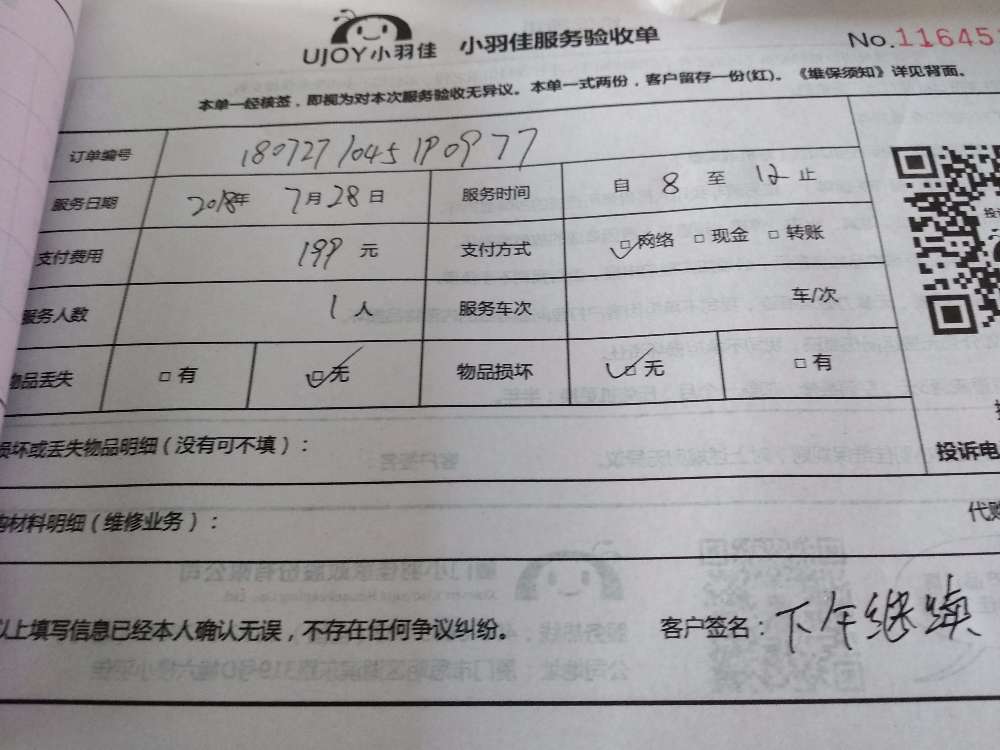 UJOY小羽佳 小羽佳服务验收单 No.11645
本单一经核签，即视为对本次服务验收无异议。本单一式两份，客户留存一份(红)。《维保须知》详见背面。
订单编号 180727104519P0977
服务日期 2018年 7月28日 服务时间 自 8 至 12 止
支付费用 199 元 支付方式 □网络 □现金 □转账
服务人数 1人 服务车次 车/次
物品丢失 □有 □无 物品损坏 □无 □有
损坏或丢失物品明细（没有可不填）：
投诉电
材料明细（维修业务）： 代购
以上填写信息已经本人确认无误，不存在任何争议纠纷。 客户签名：下午继续